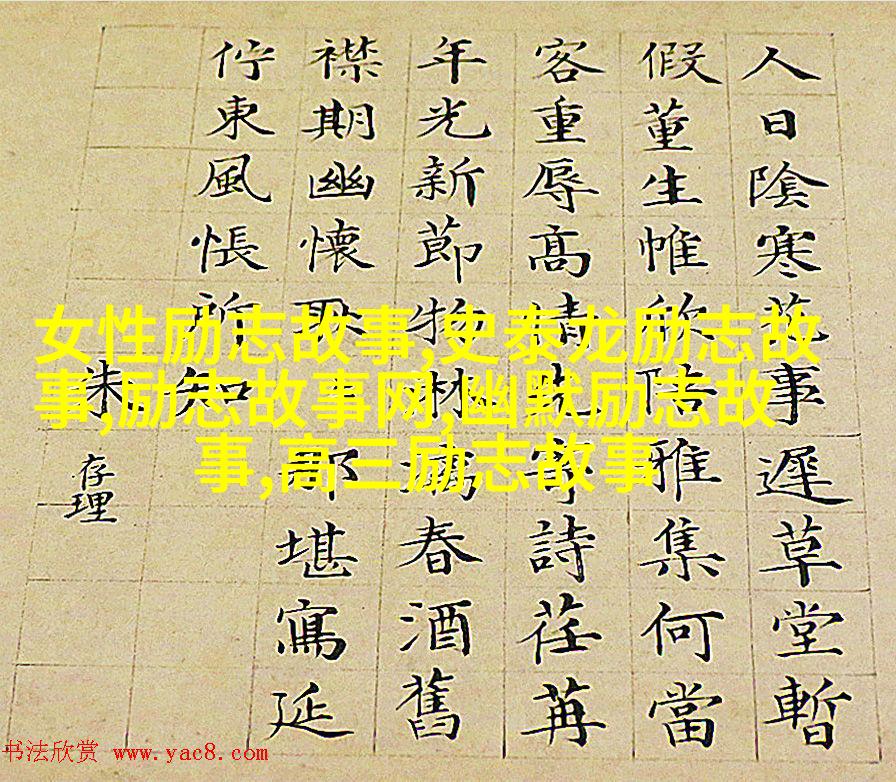 人日陰寒花事遲草堂暫
假董生帷欣陪雅集何當
客重辱高情先寄詩荏苒
年光新節物淋漓春酒舊
襟期幽懷耿那堪寫延
佇東風悵所知
朱存理
女性励志故事,史泰龙励志故
事,励志故事网,幽默励志故
事,高三励志故事
书法欣赏 www.yac8.com